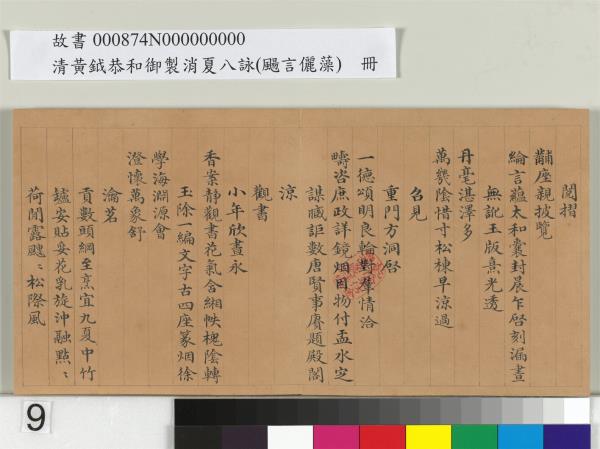 故書 000874N000000000
清黃鉞恭和御製消夏八詠(颺言儷藻) 冊
閱摺
黼座親披覽
綸言蘊太和囊封晨乍啓刻漏晝
無訛玉版熹光透
丹毫湛澤多
萬幾陰惜寸松棟早涼過
召見
重門方洞啓
一德頌明良輪對羣情洽
疇咨庶政詳鏡烟因物付盂水定
謀臧詎數唐賢事賡題殿閣
涼
觀書
小年欣晝永
香案靜觀書花氣含緗帙槐陰轉
玉除一編文字古四座篆烟徐
學海淵源會
澄懷萬象舒
瀹茗
貢數頭綱至烹宜九夏中竹
罏安貼妥花乳旋沖融點點
荷間露颸颸松際風
9